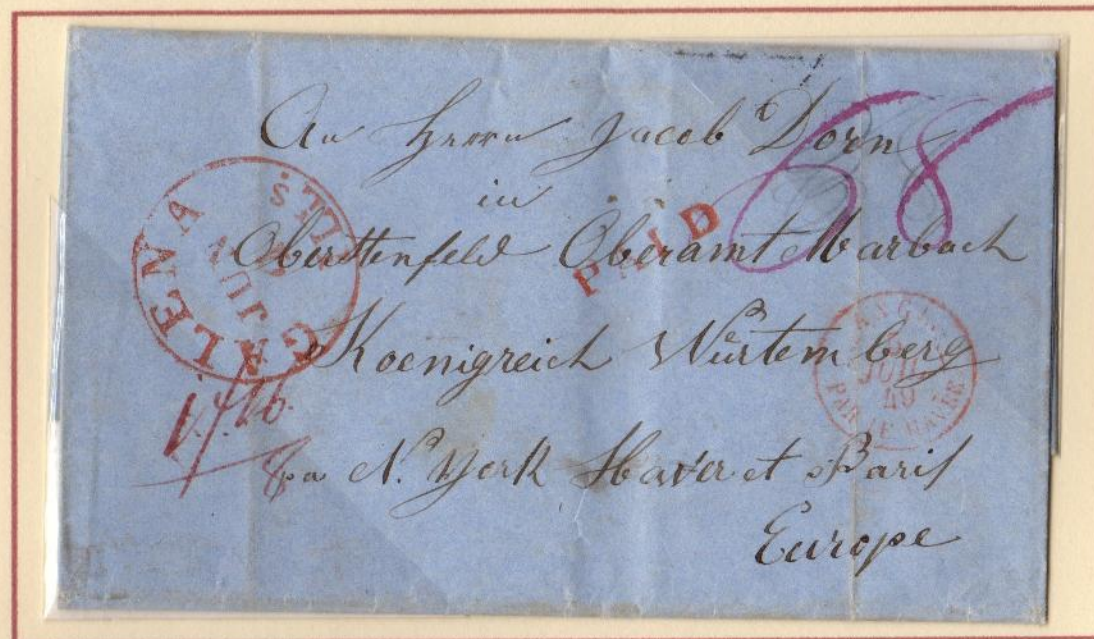 An Herrn Jacob Dorn
in
Oberstenfeld Oberamt Marbach
Koenigreich Würtemberg
pa N. York Haver et Paris
Europe
PAID
68
GALENA ILS.
JUL
ANGL.
JUIL
49
PAR LE HAVRE